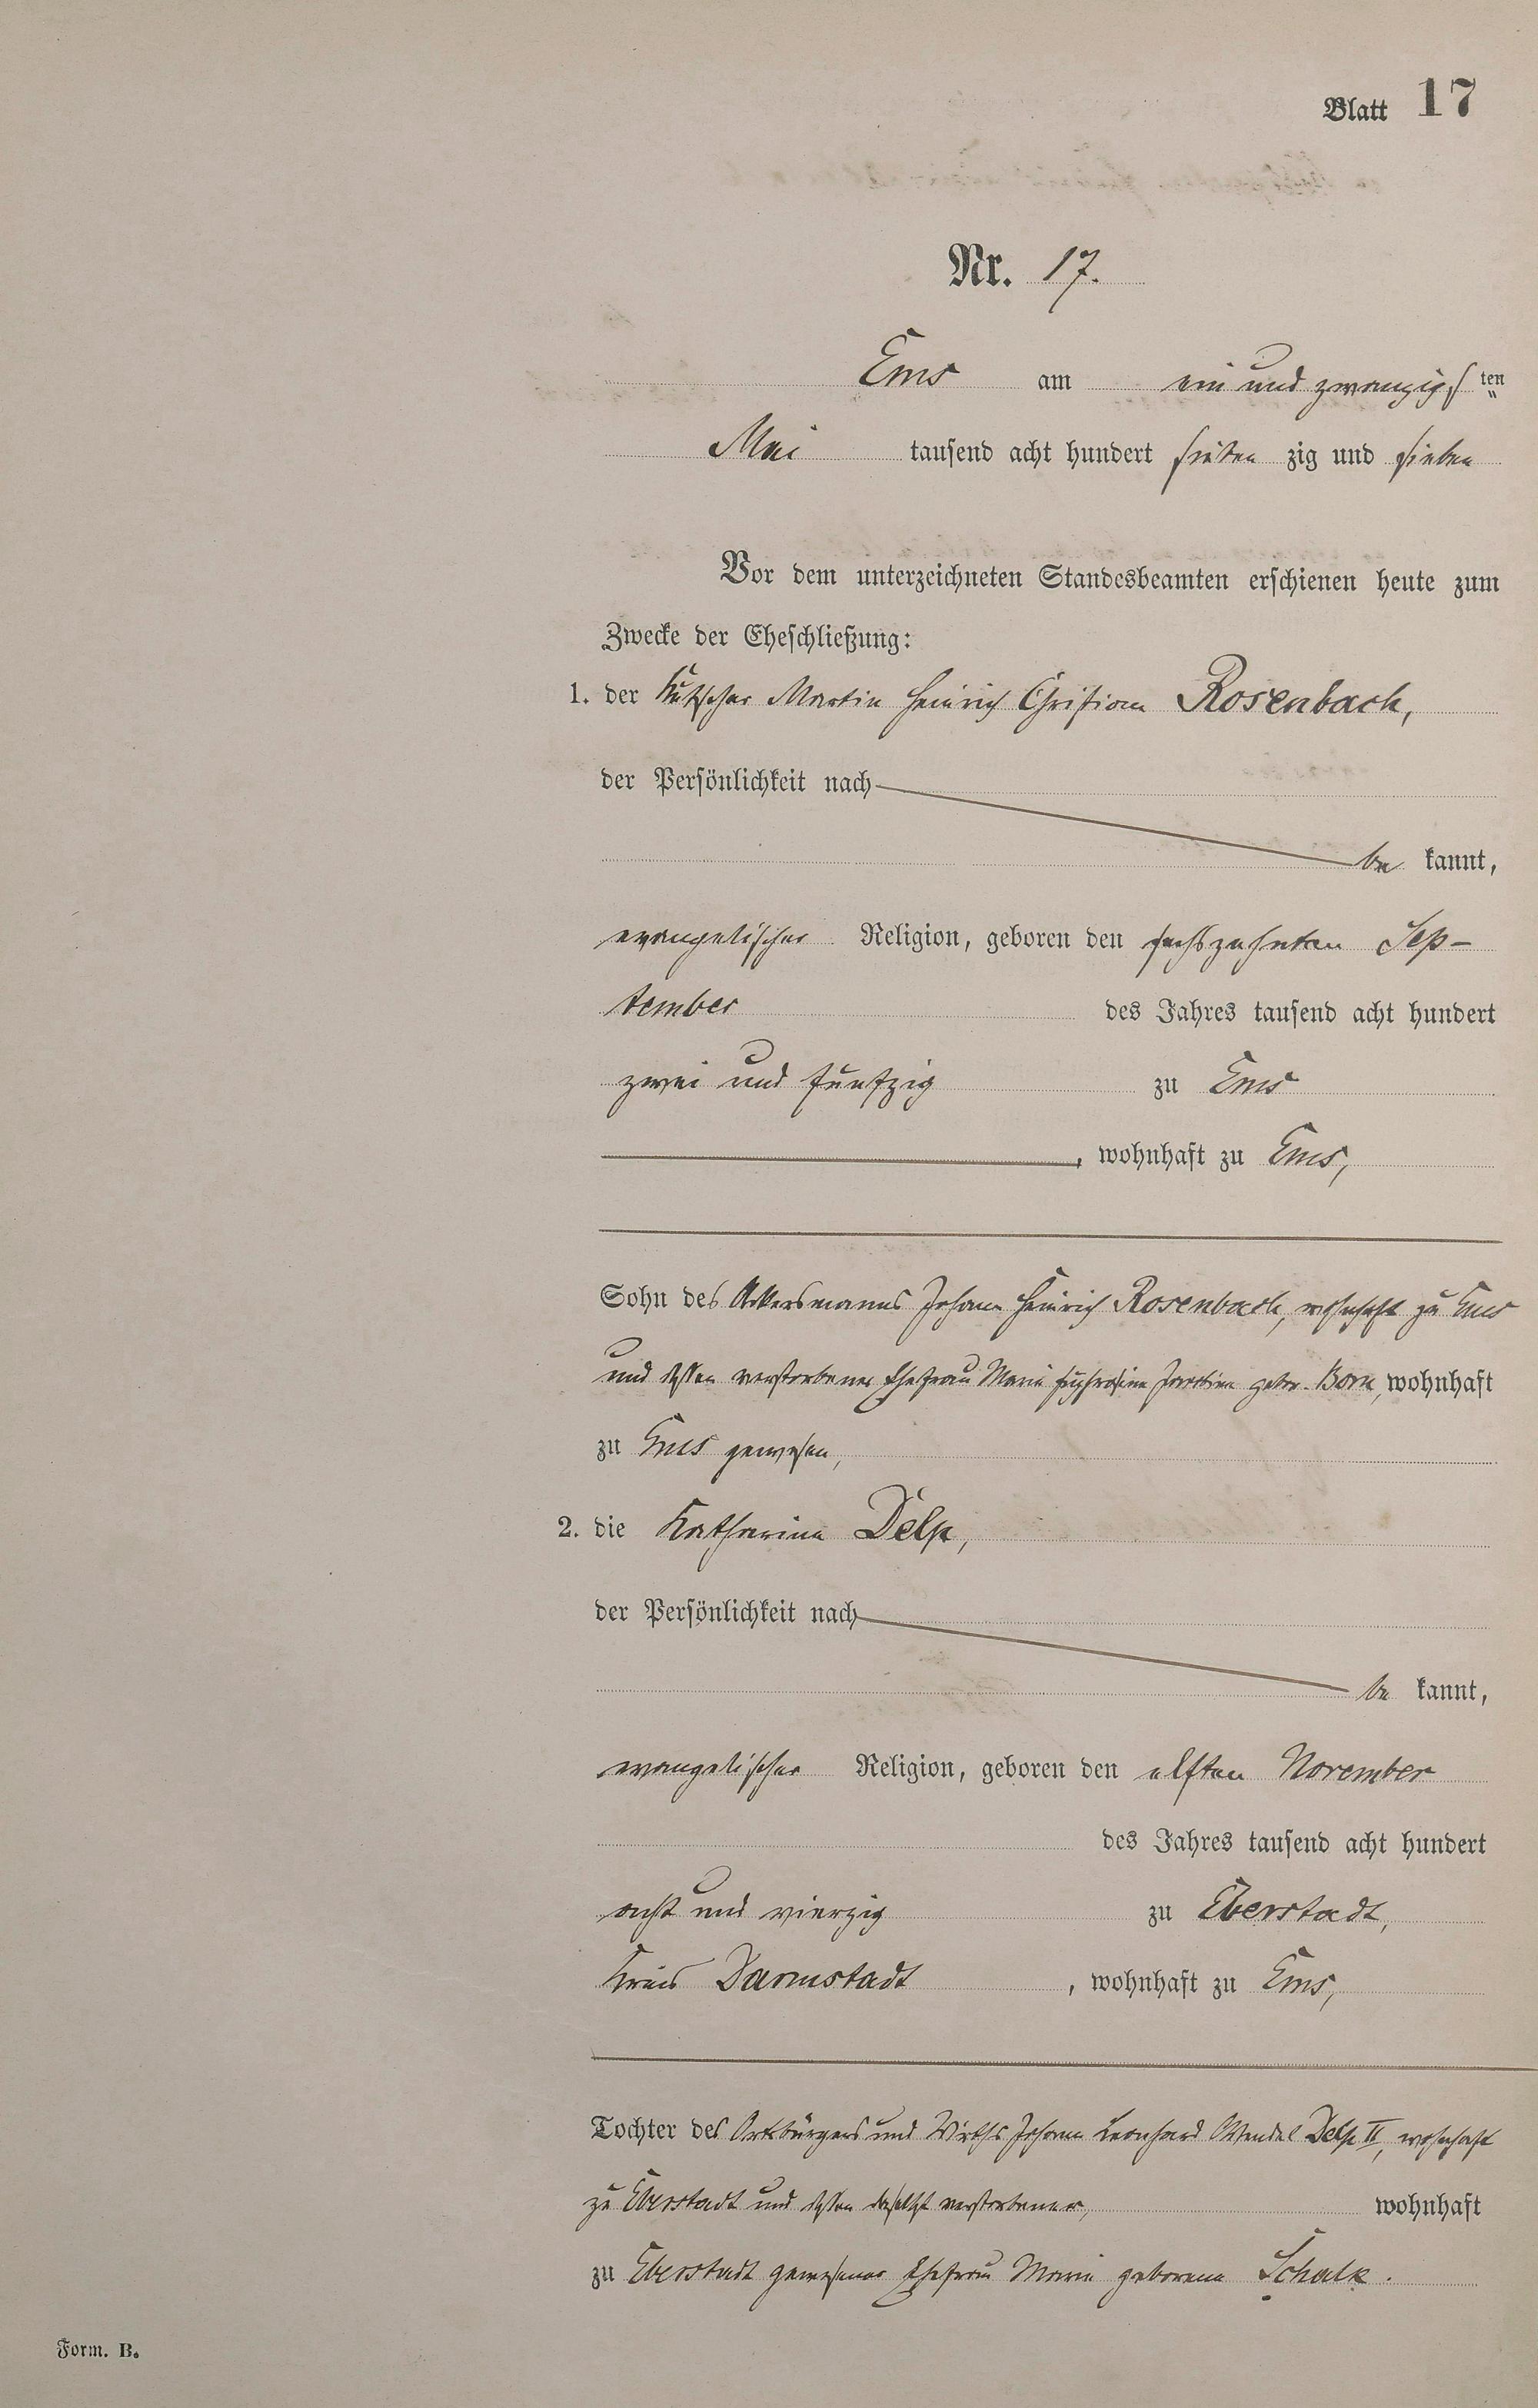 Blatt 17
Nr. 17.
Ems am ein und zwanzigsten
Mai tausend acht hundert sieben zig und sieben
Vor dem unterzeichneten Standesbeamten erschienen heute zum
Zwecke der Eheschließung:
1. der Kutscher Martin Heinrich Christian Rosenbach,
der Persönlichkeit nach
be kannt,
evangelischer Religion, geboren den sechszehnten Sep-
tember des Jahres tausend acht hundert
zwei und fünfzig zu Ems
, wohnhaft zu Ems,
Sohn des Ackersmanns Johann Heinrich Rosenbach, wohnhaft zu Ems
und dessen verstorbener Ehefrau Marie gebor. Born, wohnhaft
zu Ems gewesen,
2. die Katharina Delp,
der Persönlichkeit nach
be kannt,
evangelischer Religion, geboren den elften November
des Jahres tausend acht hundert
acht und vierzig zu Eberstadt,
Kreis Darmstadt, wohnhaft zu Ems,
Tochter des Ortsbürgers und Wirths Johann Leonhard Wendel Delp II, wohnhaft
zu Eberstadt und dessen daselbst verstorbener, wohnhaft
zu Eberstadt gewesener Ehefrau Marie geborene Schalk.
Form. B.